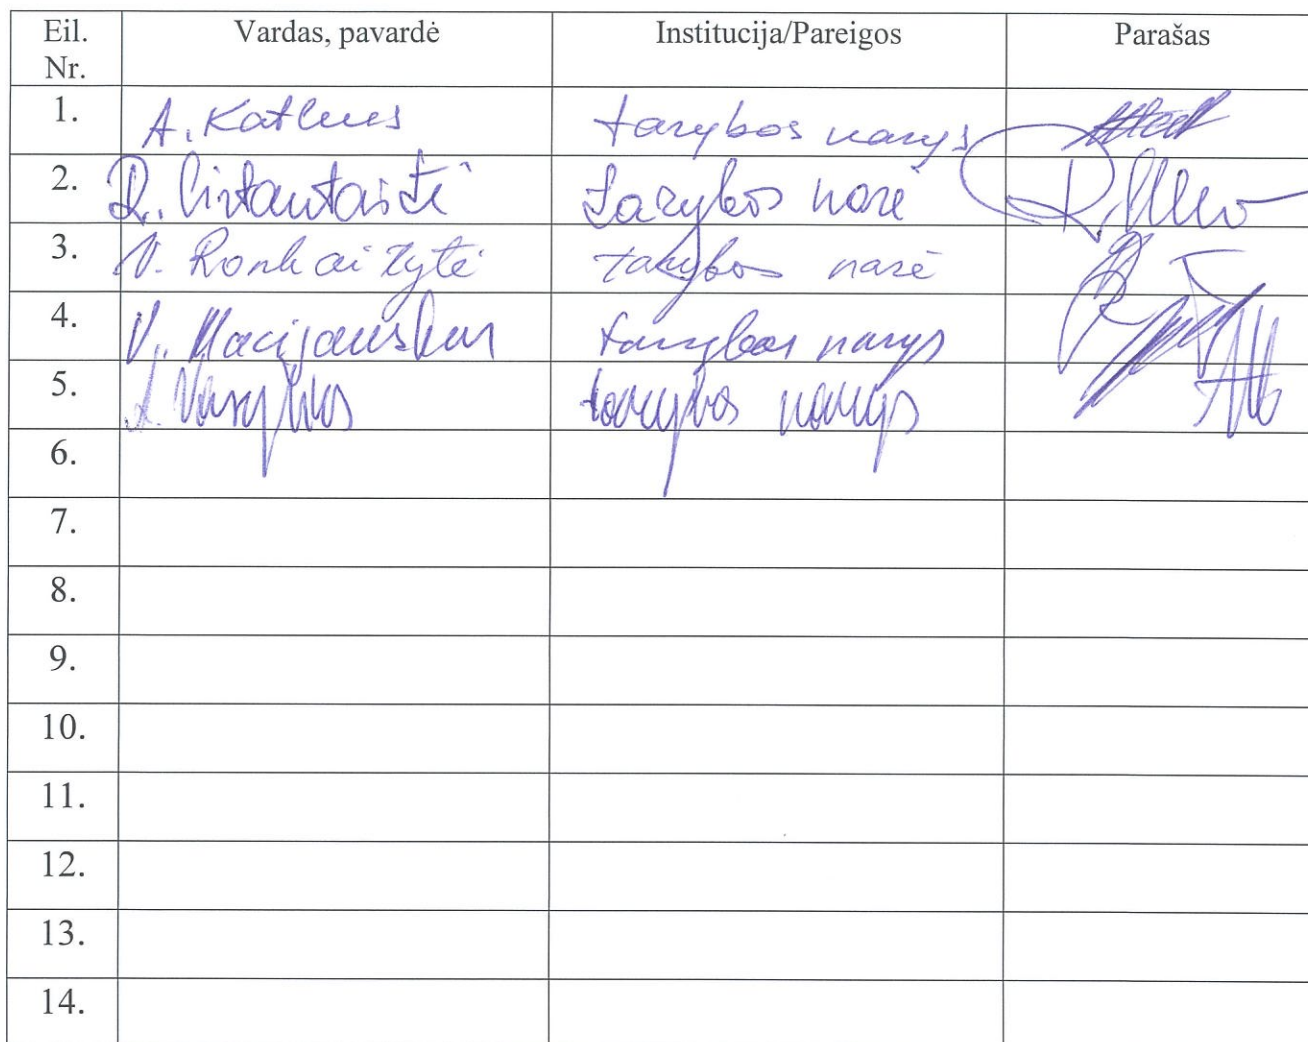 Eil. Nr. Vardas, pavardė Institucija/Pareigos Parašas
1. A. Katinas tarybos narys
2. R. tarybos narė
3. V. tarybos narė
4. V. Macijauskas tarybos narys
5. tarybos narys
6.
7.
8.
9.
10.
11.
12.
13.
14.